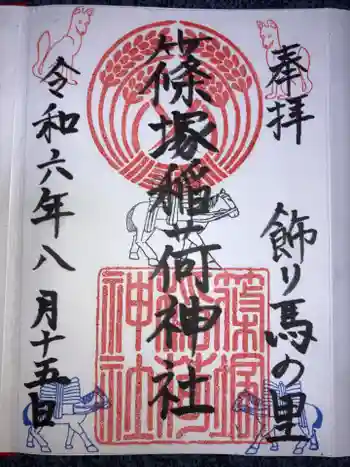 奉拝
飾り馬の里
篠塚稲荷神社
篠塚
稲荷
神社
令和六年八月十五日